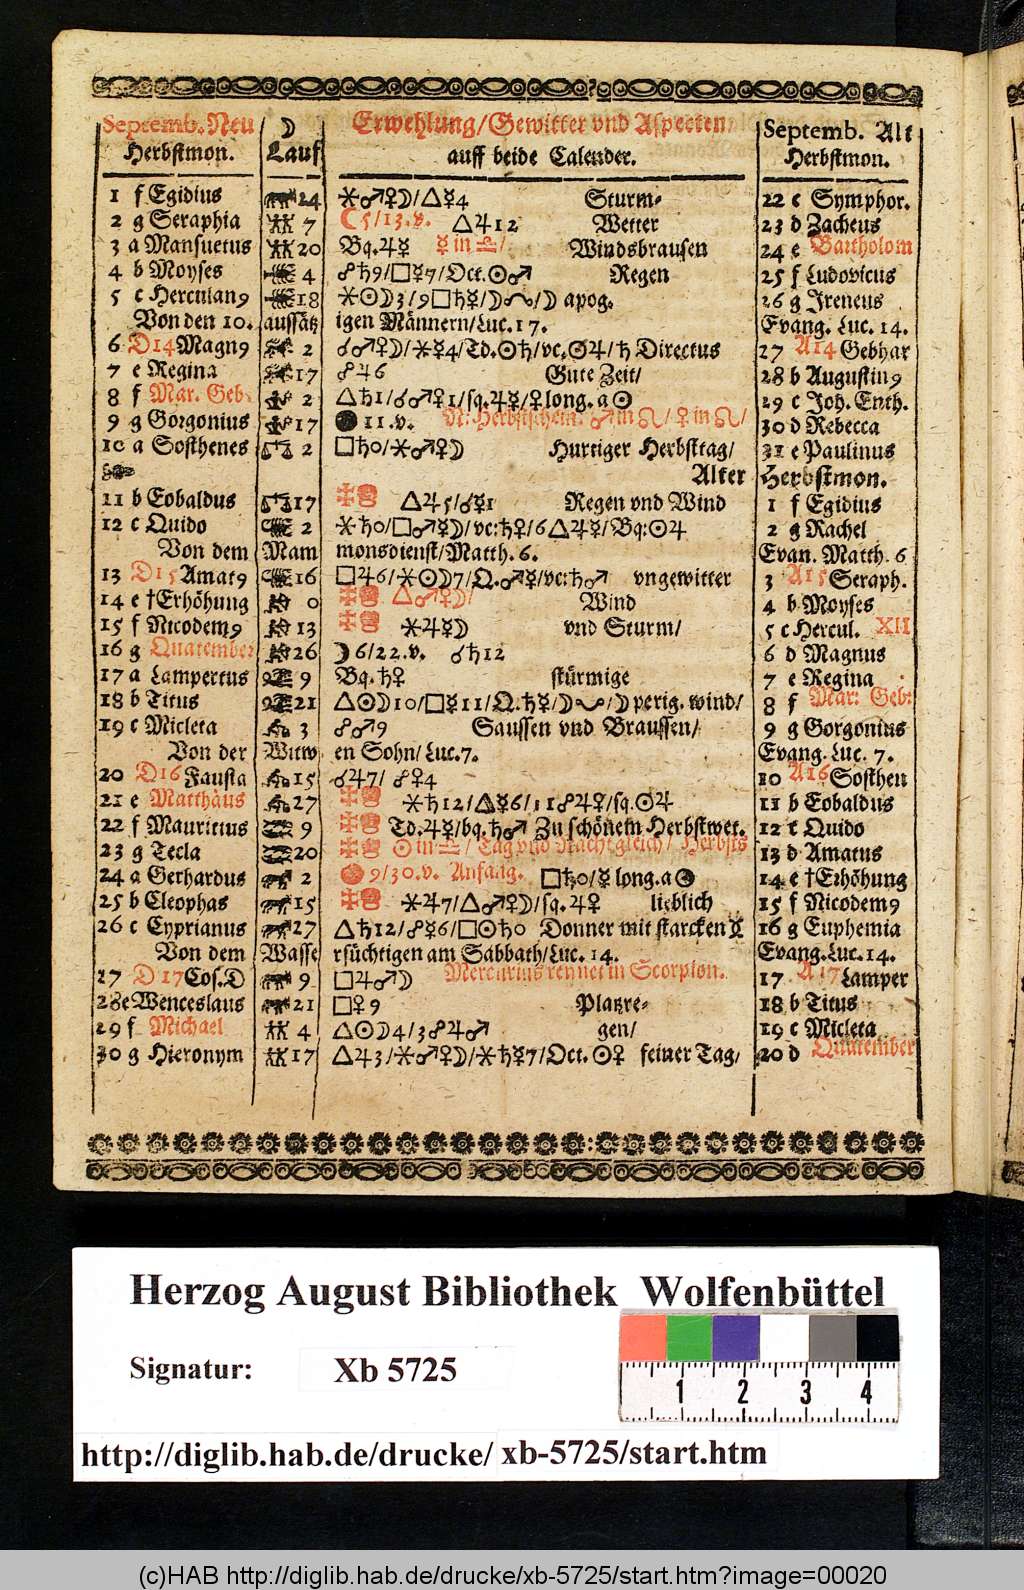 Septemb. Neu ☽ Erwehlung/Gewitter vnd Aspecten Septemb. Alt
Herbstmon. Lauf auff beide Calender. Herbstmon.
1 f Egidius 24 ⚹♂♀☽/△☿4 Sturm- 22 c Symphor.
2 g Seraphia 7 ☾5/13.v. △♃12 Wetter 23 d Zacheus
3 a Mansuetus 20 Bq.♃☿ ☿in♎/ Windsbrausen 24 e Bartholom
4 b Moyses 4 ☍♄9/□☿7/Oct.☉♂ Regen 25 f Ludovicus
5 c Herculan9 18 ⚹☉☽3/9□♄☿/☽ /☽ apog. 26 g Ireneus
Von den 10. aussätzigen Männern/Luc.17. Evang. Luc. 14.
6 D14 Magn9 2 ☌♂♀☽/⚹☿4/Td.☉♄/vc.☉♃/♄ Directus 27 A14 Gebhar
7 e Regina 17 ☍♃6 Gute Zeit/ 28 b Augustin9
8 f Mar. Geb. 2 △♄1/☌♂♀1/sq.♃☿/♀long.a☉ 29 c Joh. Enth.
9 g Gorgonius 17 11.v. N: Herbstschein. ♂in♌/♀in♌/ 30 d Rebecca
10 a Sosthenes 2 □♄0/⚹♂♀☽ Hurtiger Herbsttag/ 31 e Paulinus
Alter Herbstmon.
11 b Eobaldus 17 △♃5/☌☿1 Regen vnd Wind 1 f Egidius
12 c Quido 2 ⚹♄0/□♂☿☽/vc:♄♀/6△♃☿/Bq:☉♃ 2 g Rachel
Von dem Mammonsdienst/Matth. 6. Evan. Matth. 6
13 D15 Amat9 16 □♃6/⚹☉☽7/Q.♂☿/vc:♄♂ vngewitter 3 A15 Seraph.
14 e †Erhöhung 0 △♂♀☽/ Wind 4 b Moyses
15 f Nicodem9 13 ⚹♃☿☽ vnd Sturm/ 5 c Hercul. XII
16 g Quatember 26 ☽6/22.v. ☌♄12 6 d Magnus
17 a Lampertus 9 Bq.♄♀ stürmige 7 e Regina
18 b Titus 21 △☉☽10/□☿11/Q.♄☿/☽ /☽ perig. wind/ 8 f Mar: Geb:
19 c Micleta 3 ☍♂9 Saussen vnd Braussen/ 9 g Gorgonius
Von der Witwen Sohn/Luc.7. Evang. Luc. 7.
20 D16 Fausta 15 ☌♃7/ ☍♀4 10 A16 Sosthen
21 e Matthäus 27 ⚹♄12/△☿6/11☍♃♀/sq.☉♃ 11 b Eobaldus
22 f Mauritius 9 Td.♃☿/bq.♄♂ Zu schönem Herbstwet. 12 c Quido
23 g Tecla 20 ☉in♎/Tag vnd Nacht gleich/ Herbsts 13 d Amatus
24 a Gerhardus 2 9/30.v. Anfang. □♄0/☿long.a 14 e †Erhöhung
25 b Cleophas 15 ⚹♃7/△♂♀☽/sq.♃♀ lieblich 15 f Nicodem9
26 c Cyprianus 27 △♄12/☍☿6/□☉♄0 Donner mit starcken 16 g Euphemia
Von dem Wassersüchtigen am Sabbath/Luc. 14. Evang. Luc. 14.
27 D17 Cos.D 9 □♃♂☽ Mercurius rennet in Scorpion. 17 A17 Lamper
28 e Wenceslaus 21 □♀9 Platzre- 18 b Titus
29 f Michael 4 △☉☽4/3☍♃♂ gen/ 19 c Micleta
30 g Hieronym 17 △♃3/⚹♂♀☽/⚹♄☿7/Oct.☉♀ feiner Tag/ 20 d Quatember
Herzog August Bibliothek Wolfenbüttel
Signatur: Xb 5725
1 2 3 4
http://diglib.hab.de/drucke/ xb-5725/start.htm
(c)HAB http://diglib.hab.de/drucke/xb-5725/start.htm?image=00020